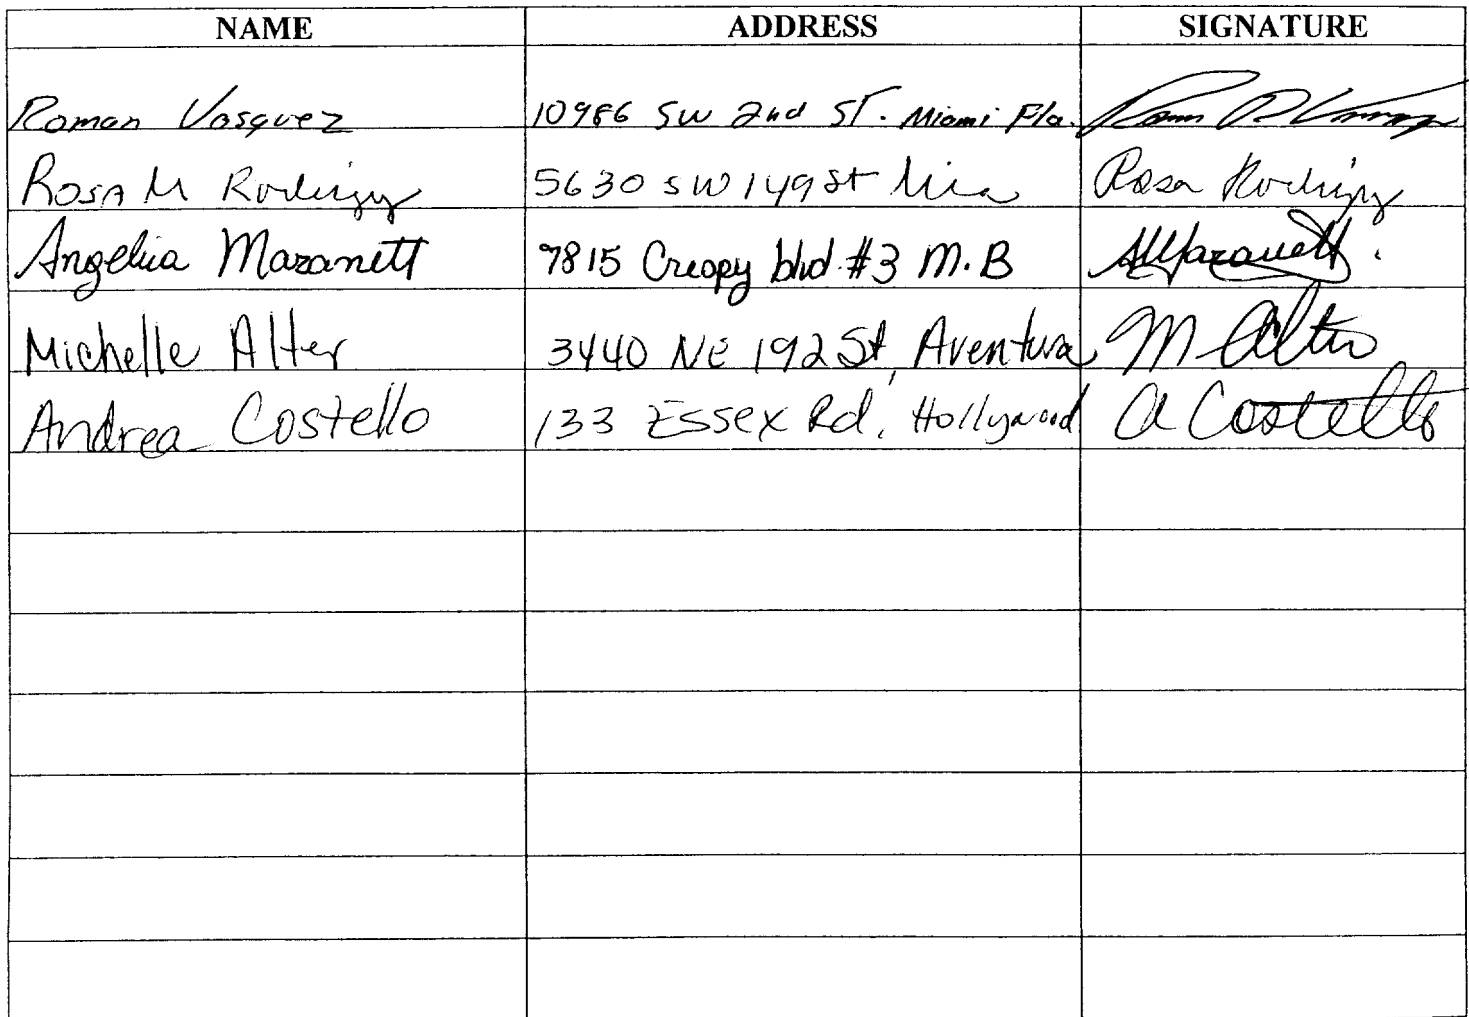 NAME ADDRESS SIGNATURE
Roman Vasquez 10986 SW 2nd ST. Miami Fla.
Rosa M 5630 SW 149 St Mia Rosa
Angelica Mazanett 7815 blvd #3 M.B AMazanett.
Michelle Alter 3440 NE 192 St, Aventura M Alter
Andrea Costello 133 Essex Rd, Hollywood A Costello